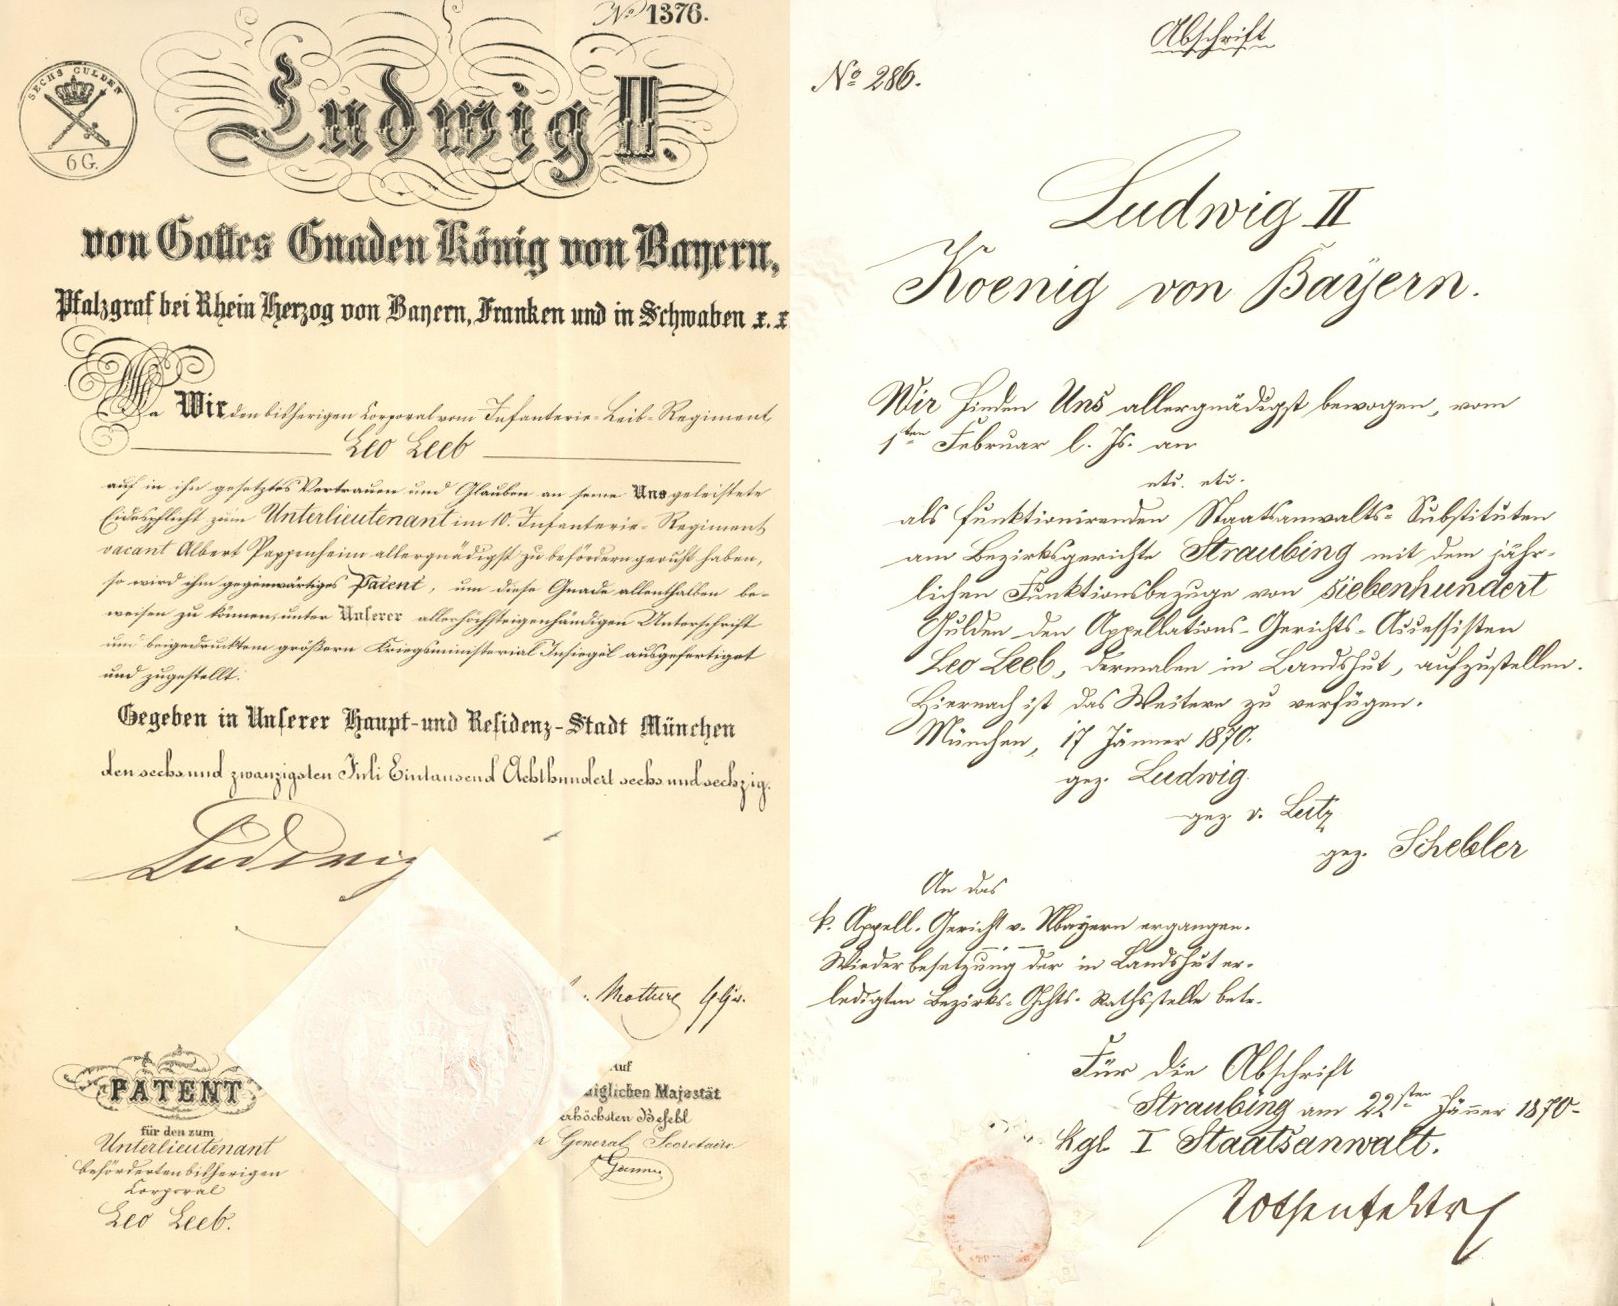 No 1376.
SECHS GULDEN
6 G.
Ludwig II.
von Gottes Gnaden König von Bayern,
Pfalzgraf bei Rhein Herzog von Bayern, Franken und in Schwaben x. x
Da Wir den bisherigen Corporal vom Infanterie-Leib-Regiment
Leo Leeb
auf in ihn gesetztes Vertrauen und Glauben an seine Uns geleistete
Eidespflicht zum Unterlieutenant im 10. Infanterie-Regiment
vacant Albert Pappenheim allergnädigst zu befördern geruht haben,
so wird ihm gegenwärtiges Patent, um diese Gnade allenthalben be-
weisen zu können, unter Unserer allerhöchsteigenhändigen Unterschrift
und beigedrucktem größern Kriegsministerial Insiegel ausgefertiget
und zugestellt.
Gegeben in Unserer Haupt-und Residenz-Stadt München
den sechs und zwanzigsten Juli Eintausend Achthundert sechs und sechzig.
Ludwig
PATENT
für den zum
Unterlieutenant
beförderten bisherigen
Corporal
Leo Leeb.
auf
niglichen Majestät
erhöchsten Befehl
r General Secretaire
Abschrift
No 286.
Ludwig II
Koenig von Bayern.
Wir finden Uns allergnädigst bewogen, vom
1ten Februar l. Js. an
etc. etc.
als funktionirenden Staatsanwalts-Substituten
am Bezirksgerichte Straubing mit dem jähr-
lichen Funktionsbezuge von siebenhundert
Gulden den Appellations-Gerichts-Accessisten
Leo Leeb, dermalen in Landshut, aufzustellen.
Hiernach ist das Weitere zu verfügen.
München, 17 Jänner 1870.
gez. Ludwig
gez. v. Lutz
gez. Schebler
An das
k. Appell. Gericht v. Nbayern ergangen.
Wiederbesetzung der in Landshut er-
ledigten Bezirks-Gchts-Rathsstelle betr.
Für die Abschrift
Straubing am 22ten Jänner 1870
Kgl I Staatsanwalt.